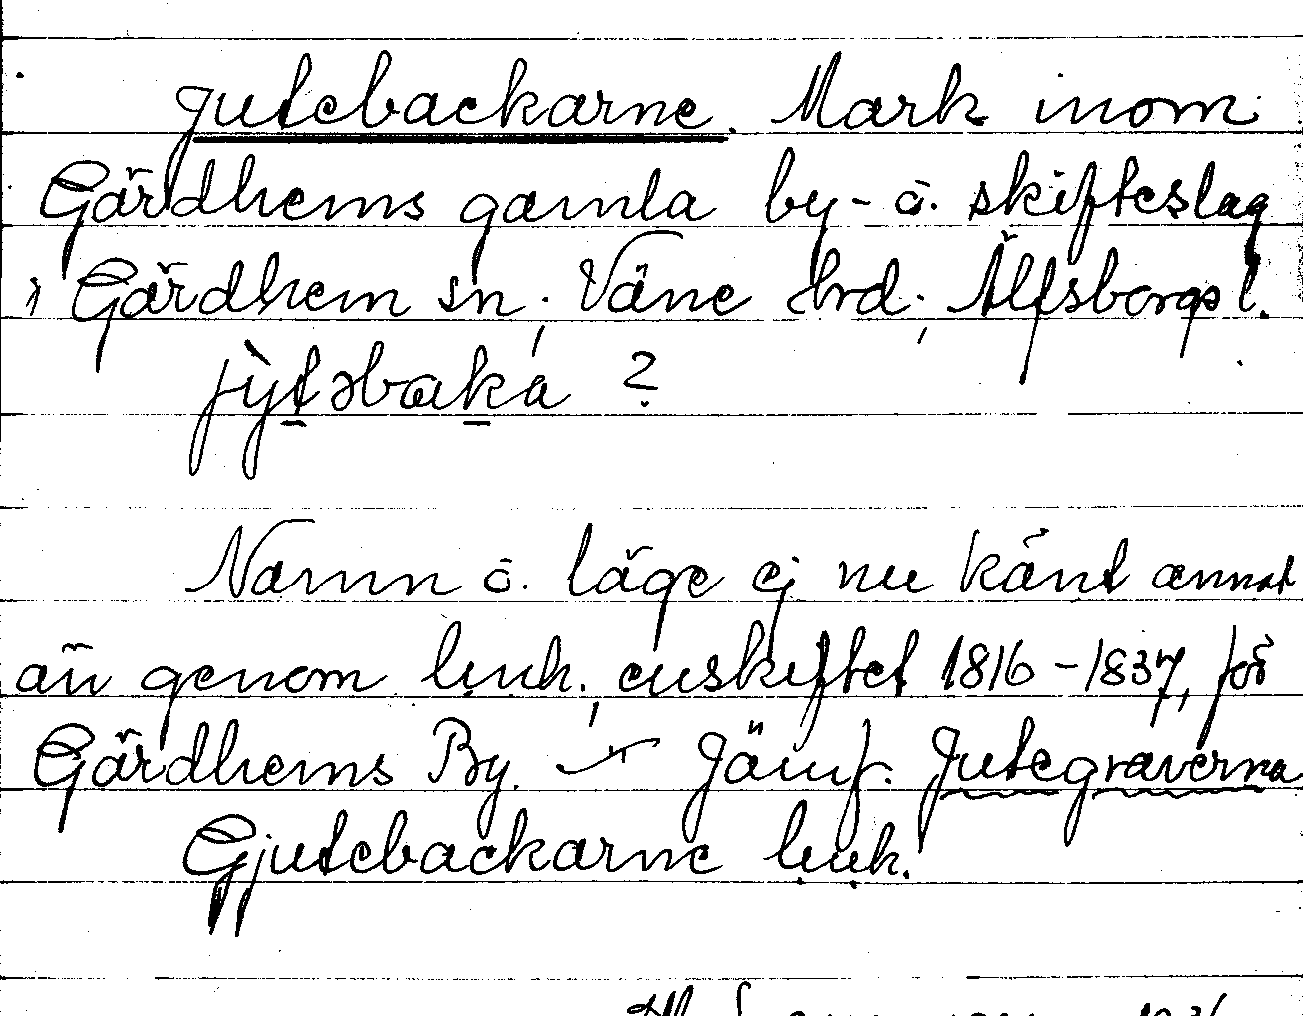 Jutebackarne. Mark inom
Gärdhems gamla by- o. skifteslag
i Gärdhem sn, Väne hrd, Älfsborgs l.
jỳtəbaka ?
Namn o. läge ej nu känt annat
än genom lmh, enskiftet 1816-1837, för
Gärdhems By. — Jämf. Jutegraverna
Gjutebackarne lmh.